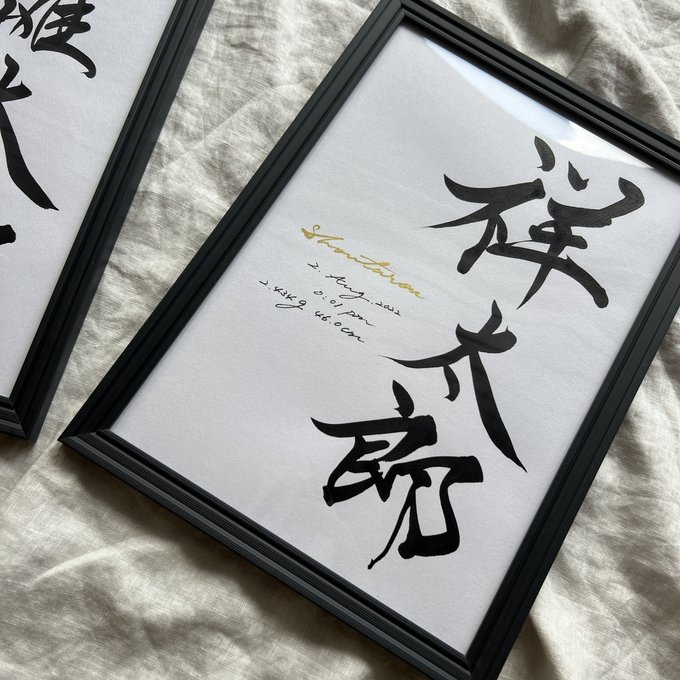 祥太郎
Shoutarou
2. Aug. 2022
0:01 pm
2.434g 46.0cm
雄太